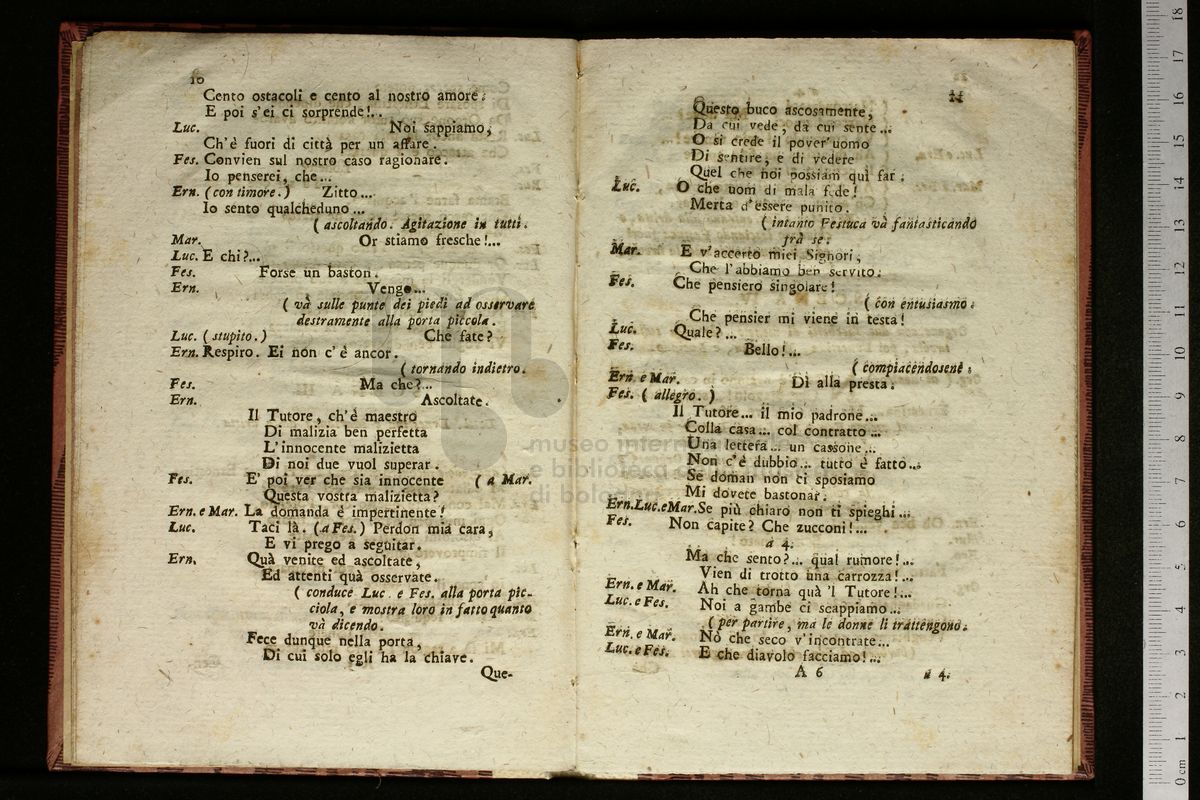 10
Cento ostacoli e cento al nostro amore:
E poi s'ei ci sorprende!..
Luc. Noi sappiamo,
Ch'è fuori di città per un affare.
Fes. Convien sul nostro caso ragionare.
Io penserei, che...
Ern. (con timore.) Zitto...
Io sento qualcheduno...
(ascoltando. Agitazione in tutti.
Mar. Or stiamo fresche!...
Luc. E chi?...
Fes. Forse un baston.
Ern. Vengo...
(và sulle punte dei piedi ad osservare
destramente alla porta piccola.
Luc. (stupito.) Che fate?
Ern. Respiro. Ei non c'è ancor.
(tornando indietro.
Fes. Ma che?...
Ern. Ascoltate.
Il Tutore, ch'è maestro
Di malizia ben perfetta
L'innocente malizietta
Di noi due vuol superar.
Fes. E' poi ver che sia innocente (a Mar.
Questa vostra malizietta?
Ern. e Mar. La domanda è impertinente!
Luc. Taci là. (a Fes.) Perdon mia cara,
E vi prego a seguitar.
Ern. Quà venite ed ascoltate,
Ed attenti quà osservate.
(conduce Luc. e Fes. alla porta pic-
ciola, e mostra loro in fatto quanto
và dicendo.
Fece dunque nella porta,
Di cui solo egli ha la chiave.
Que-
11
Questo buco ascosamente,
Da cui vede, da cui sente...
O si crede il pover'uomo
Di sentire, e di vedere
Quel che noi possiam quì far.
Luc. O che uom di mala fede!
Merta d'essere punito.
(intanto Festuca và fantasticando
frà se.
Mar. E v'accerto miei Signori,
Che l'abbiamo ben servito.
Fes. Che pensiero singolare!
(con entusiasmo.
Che pensier mi viene in testa!
Luc. Quale?...
Fes. Bello!...
(compiacendosene.
Ern. e Mar. Dì alla presta.
Fes. (allegro.)
Il Tutore... il mio padrone...
Colla casa... col contratto...
Una lettera... un cassone...
Non c'è dubbio... tutto è fatto...
Se doman non ci sposiamo
Mi dovete bastonar.
Ern. Luc. e Mar. Se più chiaro non ti spieghi...
Fes. Non capite? Che zucconi!...
a 4.
Ma che sento?... qual rumore!...
Vien di trotto una carrozza!...
Ern. e Mar. Ah che torna quà 'l Tutore!...
Luc. e Fes. Noi a gambe ci scappiamo...
(per partire, ma le donne li trattengono.
Ern. e Mar. Nò che seco v'incontrate...
Luc. e Fes. E che diavolo facciamo!...
A 6
a 4.